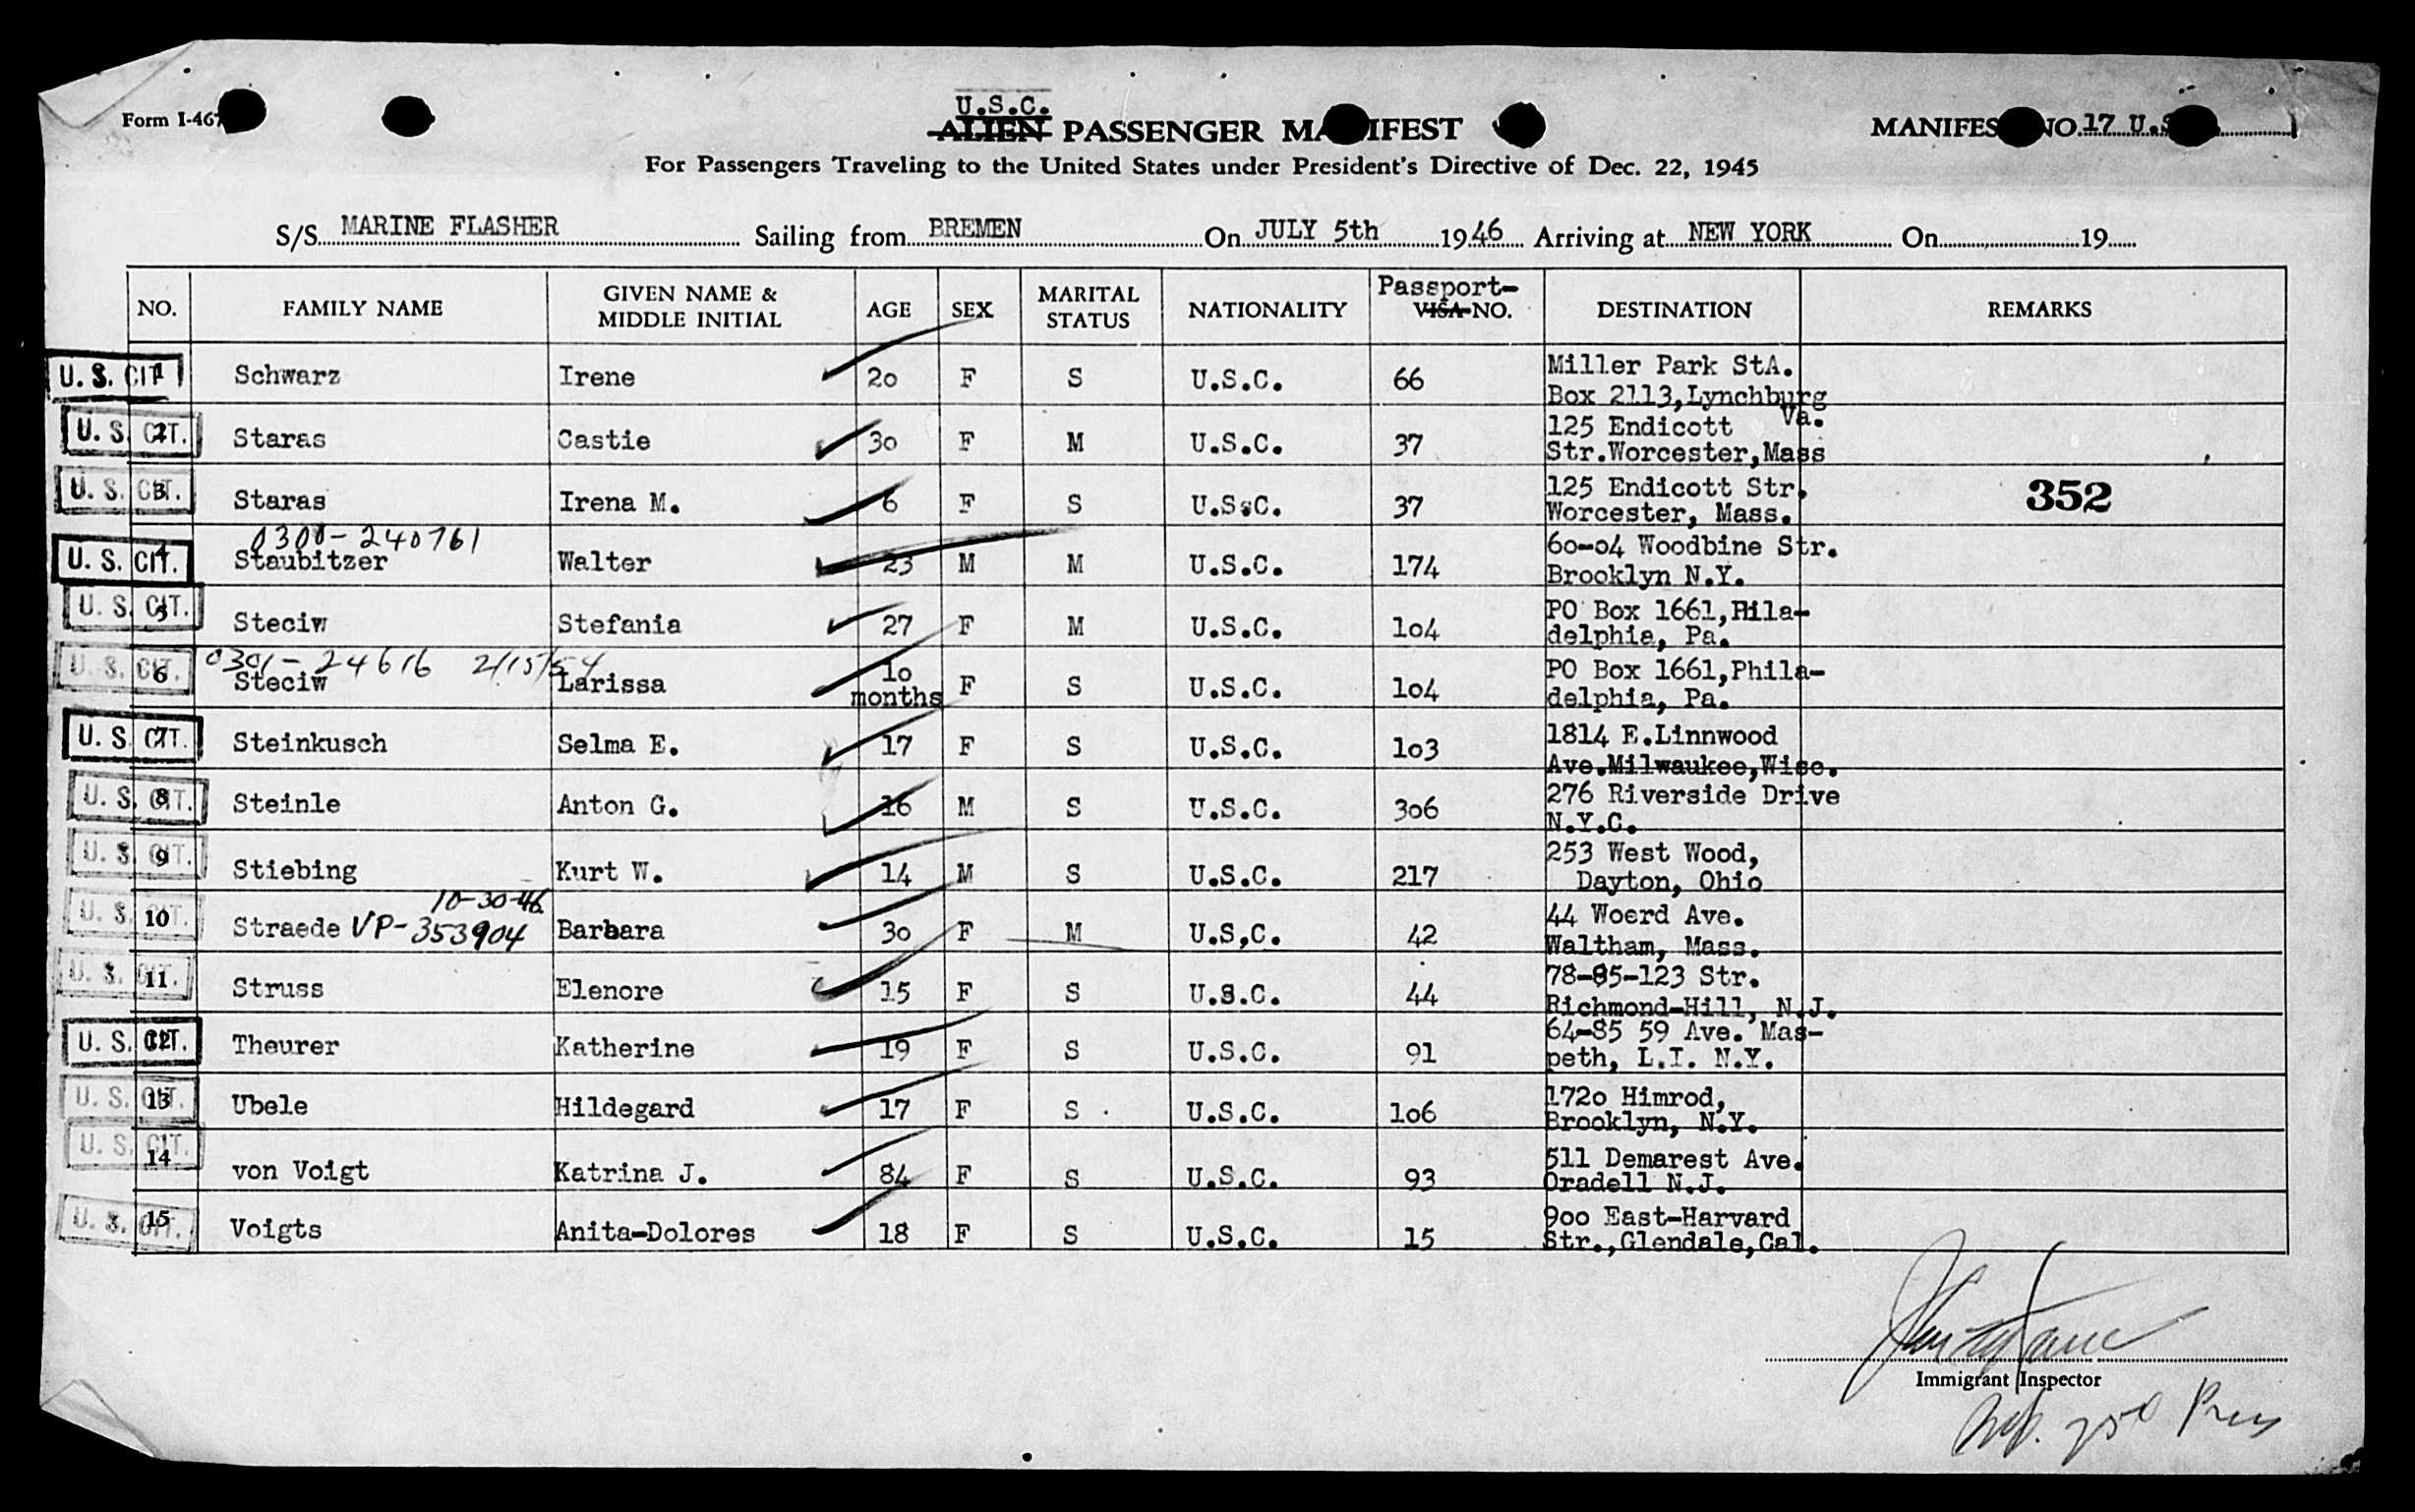 Form I-467
U.S.C.
ALIEN PASSENGER MANIFEST
MANIFEST NO. 17 U.S.
For Passengers Traveling to the United States under President's Directive of Dec. 22, 1945
S/S MARINE FLASHER Sailing from BREMEN On JULY 5th 1946 Arriving at NEW YORK On 19
NO. FAMILY NAME GIVEN NAME & MIDDLE INITIAL AGE SEX MARITAL STATUS NATIONALITY Passport- VISA NO. DESTINATION REMARKS
U. S. CIT 1 Schwarz Irene 20 F S U.S.C. 66 Miller Park StA.
Box 2113,Lynchburg Va.
U. S. CIT. 2 Staras Castie 30 F M U.S.C. 37 125 Endicott
Str.Worcester,Mass
U. S. CIT. 3 Staras Irena M. 6 F S U.S.C. 37 125 Endicott Str.
Worcester, Mass.
352
0300-240761
U. S. CIT. 4 Staubitzer Walter 23 M M U.S.C. 174 60-04 Woodbine Str.
Brooklyn N.Y.
U. S. CIT. 5 Steciw Stefania 27 F M U.S.C. 104 PO Box 1661,Phila-
delphia, Pa.
0301-24616 2/15/54
U. S. CIT. 6 Steciw Larissa 10 months F S U.S.C. 104 PO Box 1661,Phila-
delphia, Pa.
U. S. CIT. 7 Steinkusch Selma E. 17 F S U.S.C. 103 1814 E.Linnwood
Ave.Milwaukee,Wisc.
U. S. CIT. 8 Steinle Anton G. 16 M S U.S.C. 306 276 Riverside Drive
N.Y.C.
U. S. CIT. 9 Stiebing Kurt W. 14 M S U.S.C. 217 253 West Wood,
Dayton, Ohio
10-30-46
U. S. CIT. 10 Straede VP-353904 Barbara 30 F M U.S,C. 42 44 Woerd Ave.
Waltham, Mass.
U. S. CIT. 11 Struss Elenore 15 F S U.S.C. 44 78-85-123 Str.
Richmond-Hill, N.J.
U. S. CIT. 12 Theurer Katherine 19 F S U.S.C. 91 64-85 59 Ave. Mas-
peth, L.I. N.Y.
U. S. CIT. 13 Ubele Hildegard 17 F S U.S.C. 106 1720 Himrod,
Brooklyn, N.Y.
U. S. CIT. 14 von Voigt Katrina J. 84 F S U.S.C. 93 511 Demarest Ave.
Oradell N.J.
U. S. CIT. 15 Voigts Anita-Dolores 18 F S U.S.C. 15 900 East-Harvard
Str.,Glendale,Cal.
Immigrant Inspector